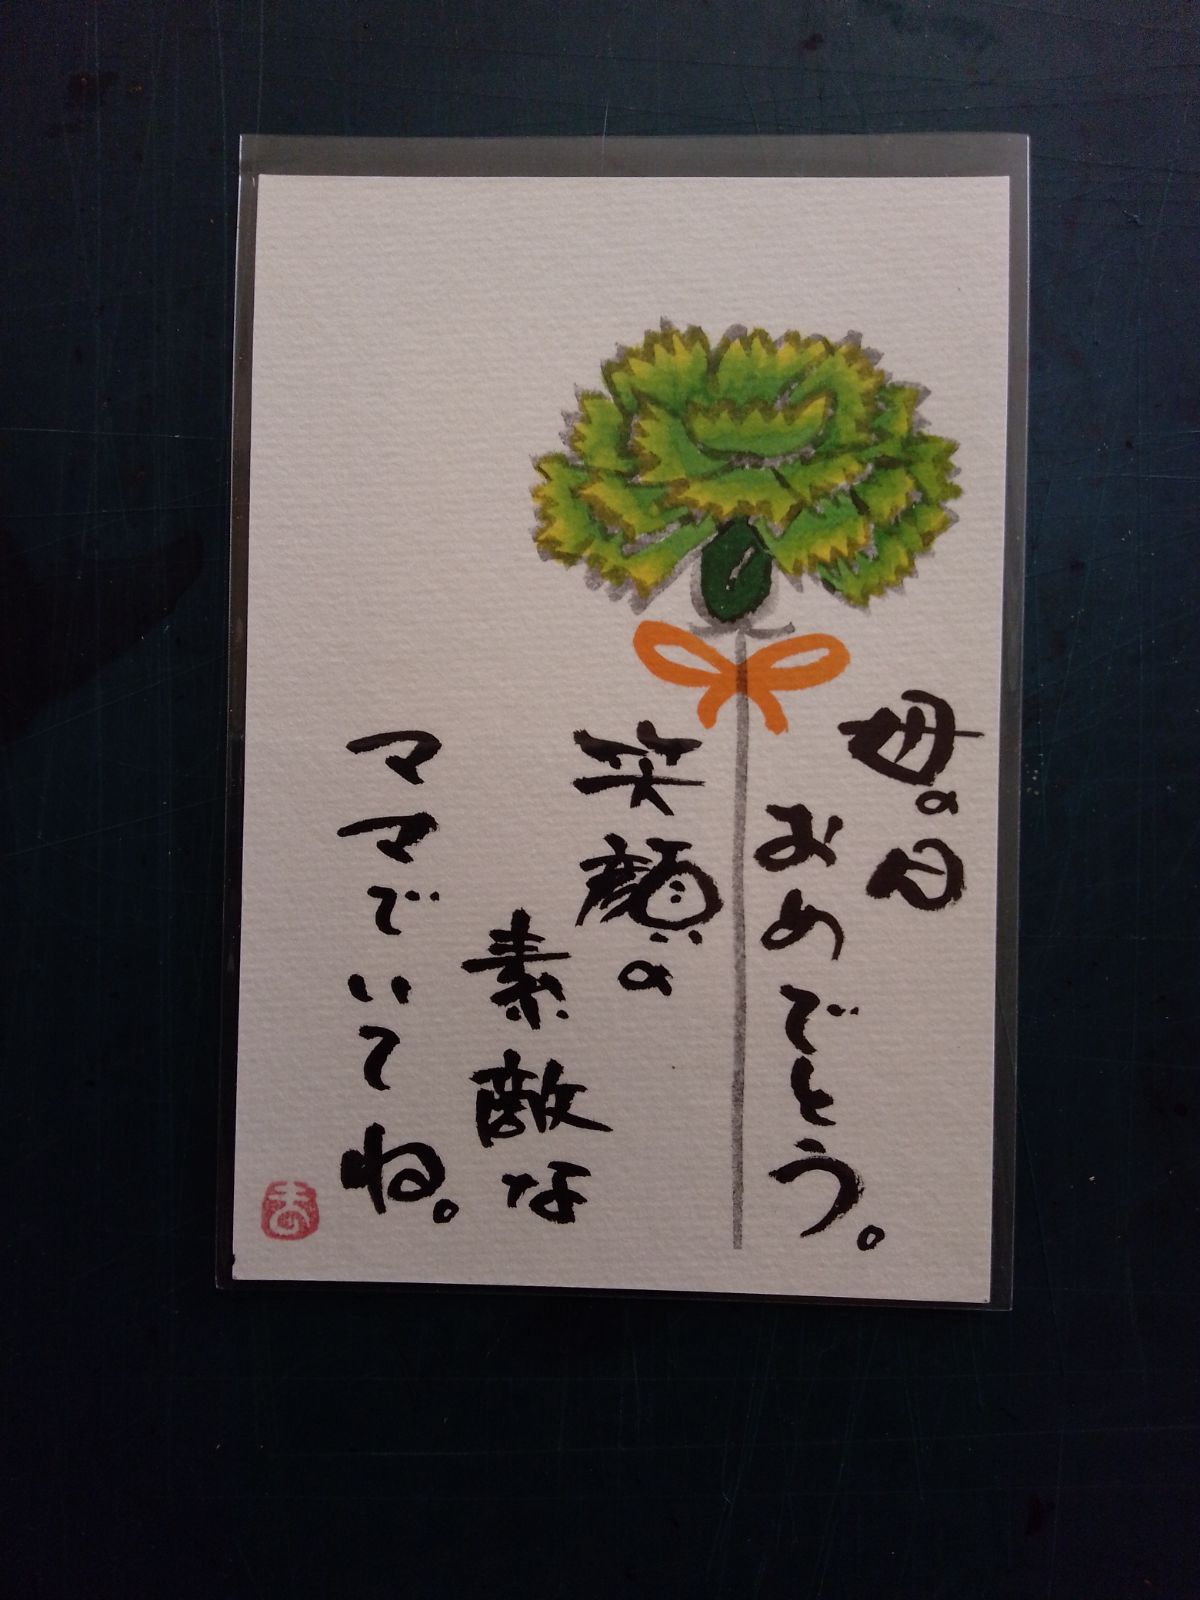 母の日
おめでとう。
笑顔の
素敵な
ママでいてね。